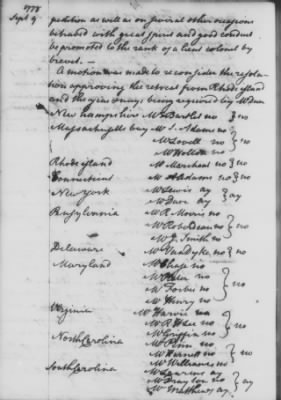 1778
Sept 9.
petition as well as on several other occasions
behaved with great spirit and good conduct
be promoted to the rank of lieut colonel by
brevet. —
A motion was made to reconsider the resolu-
tion approving the retreat from Rhode island
and the yeas & nays being required by Mr Duer
New hampshire Mr Bartlet no } no
Massachusetts bay Mr S. Adams no
Mr Lovell no } no
Mr Holten no
Rhode island Mr Marchant no } no
Connecticut Mr A Adams no } no
New York Mr Lewis ay
Mr Duer ay } ay
Pensylvania Mr R Morris no
Mr Roberdeau no } no
Mr J. Smith no
Delaware Mr Vandyke no } no
Maryland Mr Chase no
Mr Plater no
Mr Forbes no } no
Mr Henry no
Virginia Mr Harvie no
Mr R H Lee no } no
Mr Griffin no
North Carolina Mr Penn no
Mr Harnett no } no
Mr Williams no
South Carolina Mr Laurens ay
Mr Drayton no } ay
Mr Mathews ay